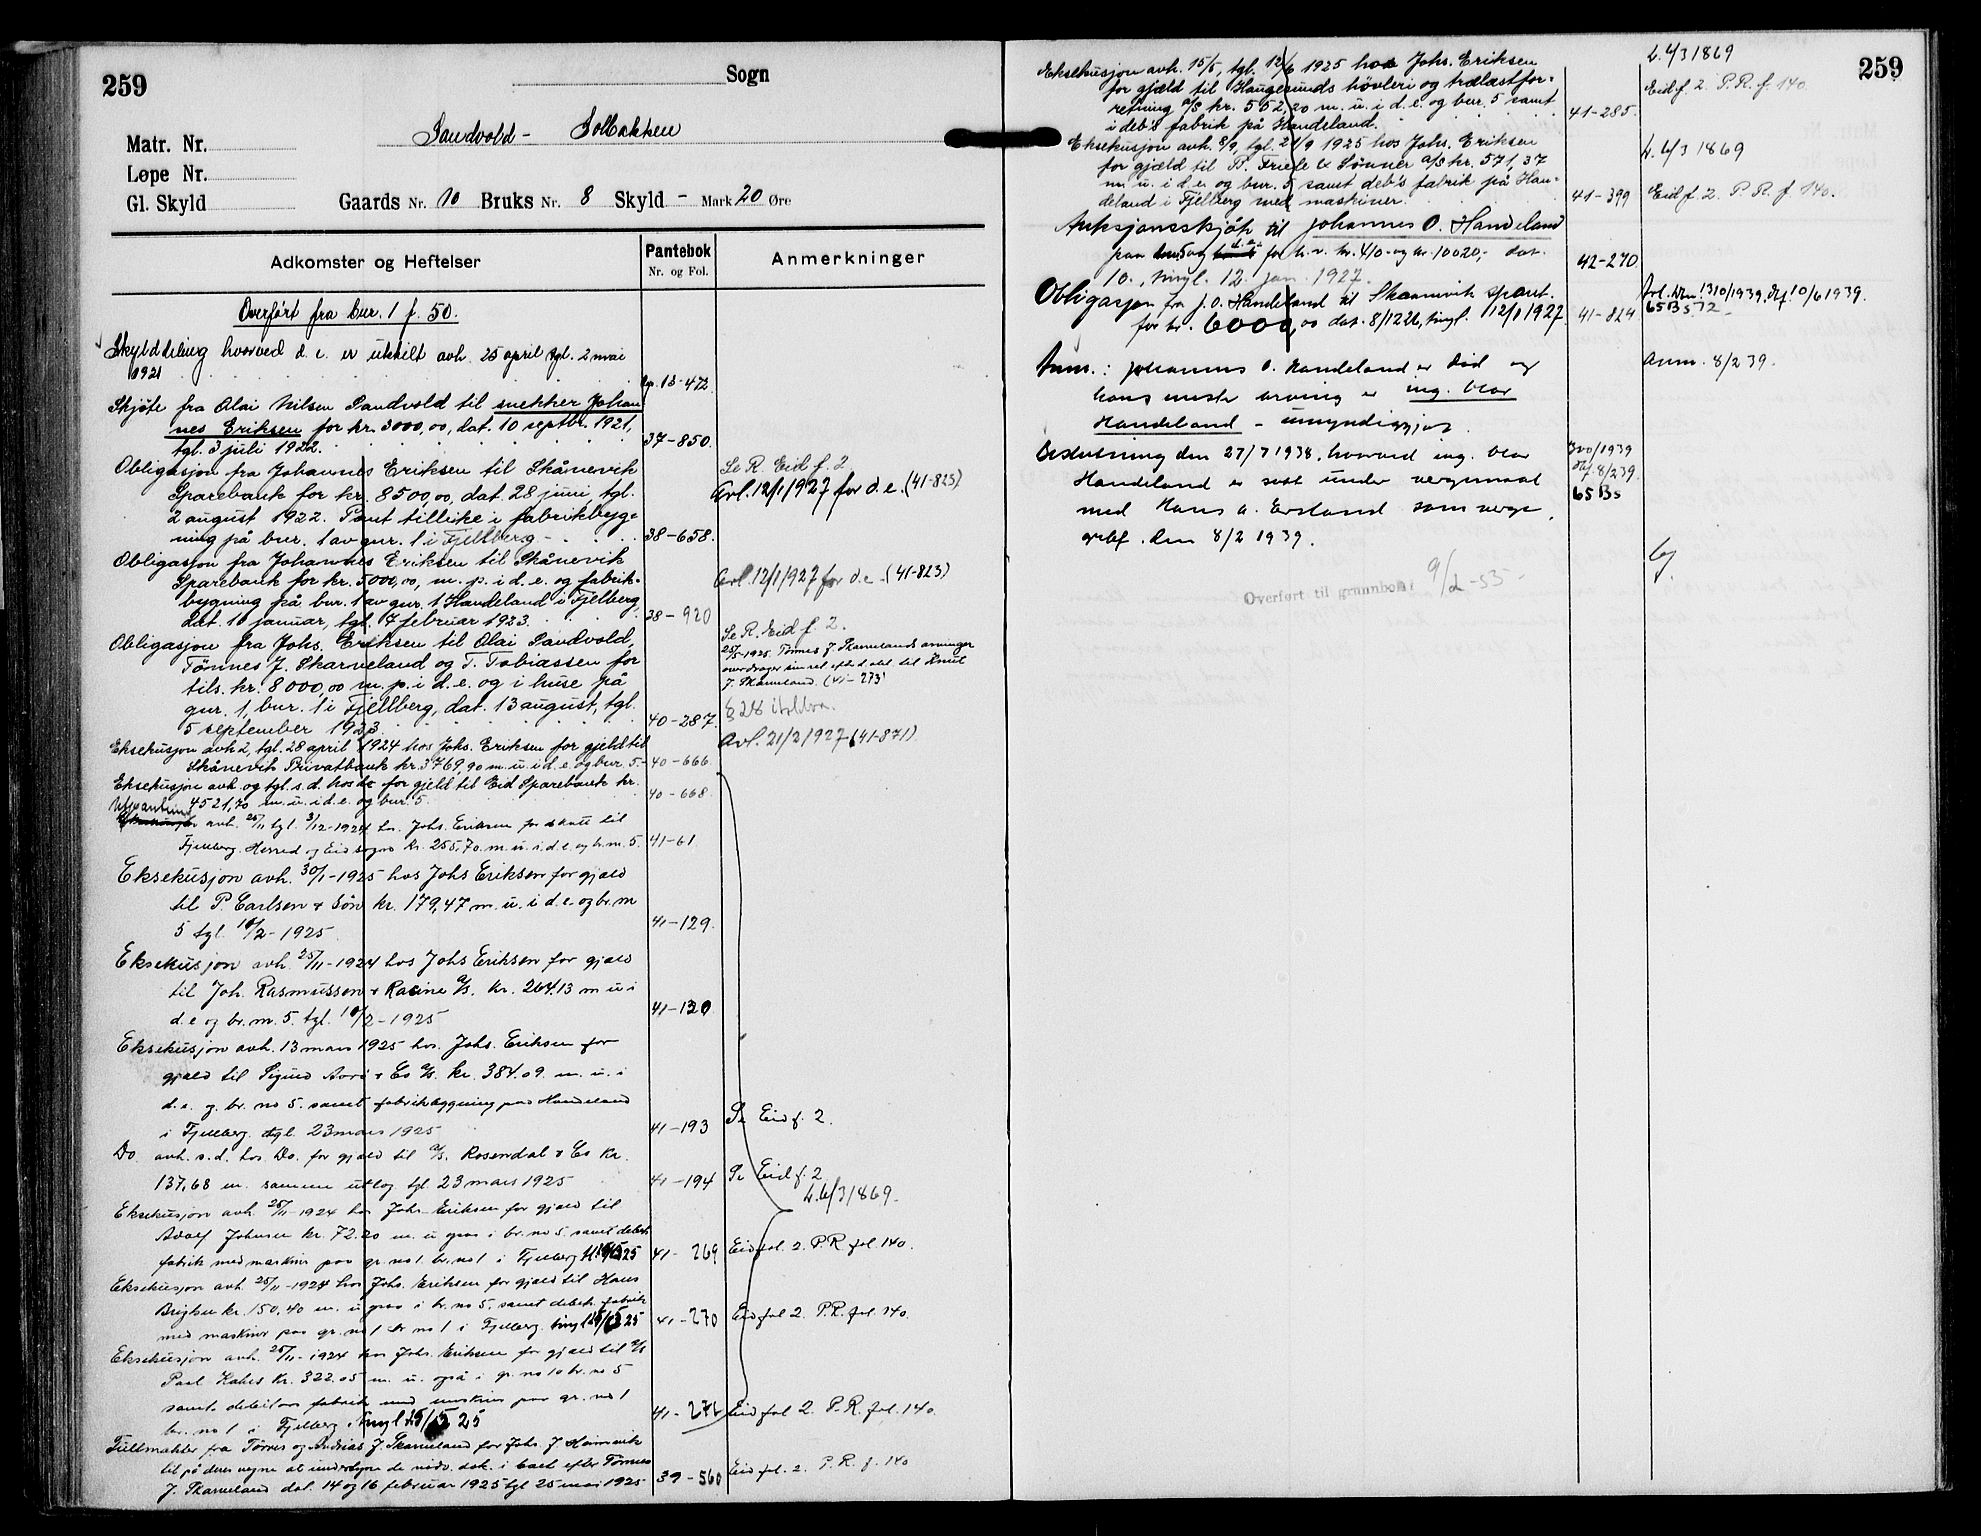 259
Sogn
Matr. Nr.
Sandvold - Solbakken
Løpe Nr.
Gl. Skyld
Gaards Nr. 10 Bruks Nr. 8 Skyld - Mark 20 Øre
Adkomster og Heftelser
Pantebok
Nr. og Fol.
Anmerkninger
Overført fra bnr. 1 f. 50.
Skylddeling hvorved d. e. er utskilt avh. 25 april tgl. 2 mai
1921 13-472
Skjøte fra Olai Nilsen Sandvold til snekker Johan
nes Eriksen for kr. 3000,00, dat. 10 septbr. 1921,
tgl. 3 juli 1922. 37-850.
Obligasjon fra Johannes Eriksen til Skånevik
Se R. Eid f. 2
Sparebank for kr. 8500,00, dat. 28 juni, tgl.
Avl. 12/1 1927 for d.e. (41-823)
2 august 1922. Pant tillike i fabrikbyg-
ning på bnr. 1 av gnr. 1 i Fjellberg. 38-658.
Obligasjon fra Johannes Eriksen til Skånevik
Sparebank for kr. 5000,00, m. p. i d. e. og fabrik-
Avl. 12/1 1927 for d.e. (41-823)
bygning på bnr. 1 av gnr. 1 Handeland i Fjelberg,
dat. 10 januar, tgl. 7 februar 1923. 38-920
Obligasjon fra Johs. Eriksen til Olai Sandvold,
Se R. Eid f. 2.
Tønnes J. Skarveland og T. Tobiassen for
25/5-1925 Tønnes J. Skarvelands arvinger
overdrager sin ret efter d. obl. til Knut
tils. kr. 8000,00 m. p. i d. e. og i huse på
J. Skarveland. (41-273)
gnr. 1, bnr. 1 i Fjellberg, dat. 13 august, tgl.
5 september 1923. 40-287.
Eksekusjon avh 2, tgl. 28 april 1924 hos Johs. Eriksen for gjeld til
Avl. 21/2 1927 (41-871)
Skånevik Privatbank kr. 3769,90 m. u. i d. e. og bnr. 5. 40-666
Eksekusjon avh. og tgl. s. d. hos for gjeld til Eid Sparebank kr.
4521,70 m. u. i d. e. og bnr. 5 40-668.
Utpantning avh. 25/11 tgl. 3/12-1924 hos Johs. Eriksen for skatt til
Fjelberg Herred og Eid sogn kr. 255,70 m. u. i d. e. og br. nr. 5. 41-61
Eksekusjon avh. 30/1-1925 hos Johs Eriksen for gjæld
til P. Carlsen & Søn kr. 179,47 m. u. i d. e. og br. nr
5 tgl. 10/2-1925 41-129.
Eksekusjon avh. 25/11-1924 hos Johs Eriksen for gjæld
til Joh. Rasmussen & Racine A/S. kr. 264.13 m u i
d. e og br. nr. 5. tgl. 10/2-1925 41-130
Eksekusjon avh. 13 mars 1925 hos Johs. Eriksen for
gjæld til Sigurd & Co A/S. kr. 384.09 m. u. i
d. e. og br. no 5. samt fabrikbygning paa Handeland
i Fjelberg. tgl. 23 mars 1925 41-193
Se Eid f. 2.
Do. avh. s. d. hos Do. for gjæld til A/S. Rosendal & Co kr.
137,68 m. samme utlæg tgl. 23 mars 1925 41-194
Se Eid f. 2
L. 6/3 1869.
Eksekusjon avh. 25/11-1924 hos Johs Eriksen for gjæld til
Adolf Johnsen kr. 72.20 m. u. ogsaa i br. no 5. samt debit.
fabrik med maskiner paa gr. no 1. br. no 1 i Fjelberg 41-269
Eid fol. 2. P.R. fol. 140.
Eksekusjon avh. 25/11-1924 hos Johs. Eriksen for gjæld til Hans
kr. 150,40 m. u. ogsaa i br. no 5. samt debit. fabrik
med maskiner paa gr. no 1 br no 1 i Fjelberg. 41-270
Eid fol 2. P.R. fol. 140.
Eksekusjon avh. 25/11-1924 hos Johs. Eriksen for gjæld til A/S
kr. 322.05 m. u. også i gr. no 10 br. no 5
samt debitors fabrik med maskiner paa gr. no 1
br. no 1 i Fjelberg 41-271
Eid fol 2. P.R. fol. 140.
Fullmakter fra Tønnes og Andreas J. Skarveland for Johs J. Heimvik
til på deres vegne at undertegne de nødv. dok. i boet efter Tønnes
J. Skarveland dat. 14 og 16 februar 1925 tgl 25 mai 1925 39-560
Eid fol. 2. P. R. f. 140
259
Eksekusjon avh. 15/5, tgl. 12/6 1925 hos Johs. Eriksen
L. 6/3 1869
for gjæld til Haugesunds høvleri og trælastfor-
Eid f. 2. P.R. f. 140.
retning A/S kr. 552,20 m. u. i d. e. og bnr. 5 samt
i deb's fabrik på Handeland. 41-285.
Eksekusjon avh. 8/9, tgl. 21/9 1925 hos Johs. Eriksen
L. 6/3 1869
for gjæld til B. Friele & Sønner A/S kr. 571,37
m. u. i d. e. og bnr. 5 samt deb's fabrik på Han-
deland i Fjelberg med maskiner. 41-399
Eid f. 2. P. R. f. 140.
Auksjonsskjøte til Johannes O. Handeland
paa bnr. 5 og d. e. for h.v. kr. 410.- og kr. 10020,- dat.
10., tingl. 12. jan. 1927. 42-270
Obligasjon fra J. O. Handeland til Skaanevik spant.
for kr. 6000,00 dat. 8/12 26, tingl. 12/1 1927. 41-824
Avl. 1310/1939, dgf. 10/6 1939.
65 Bs 72
Anm.: Johannes O. Handeland er død og
Anm. 8/2 39.
hans eneste arving er ing. Olav
Handeland - umyndiggjort.
Beslutning den 27/7 1938, hvorved ing. Olav
300/1939
Handeland er sat under vergemaal
dgf. 8/2 39.
65 Bs
med Hans A. som verge,
dgbf. den 8/2 1939.
Overført til grunnboken 9/2-53-